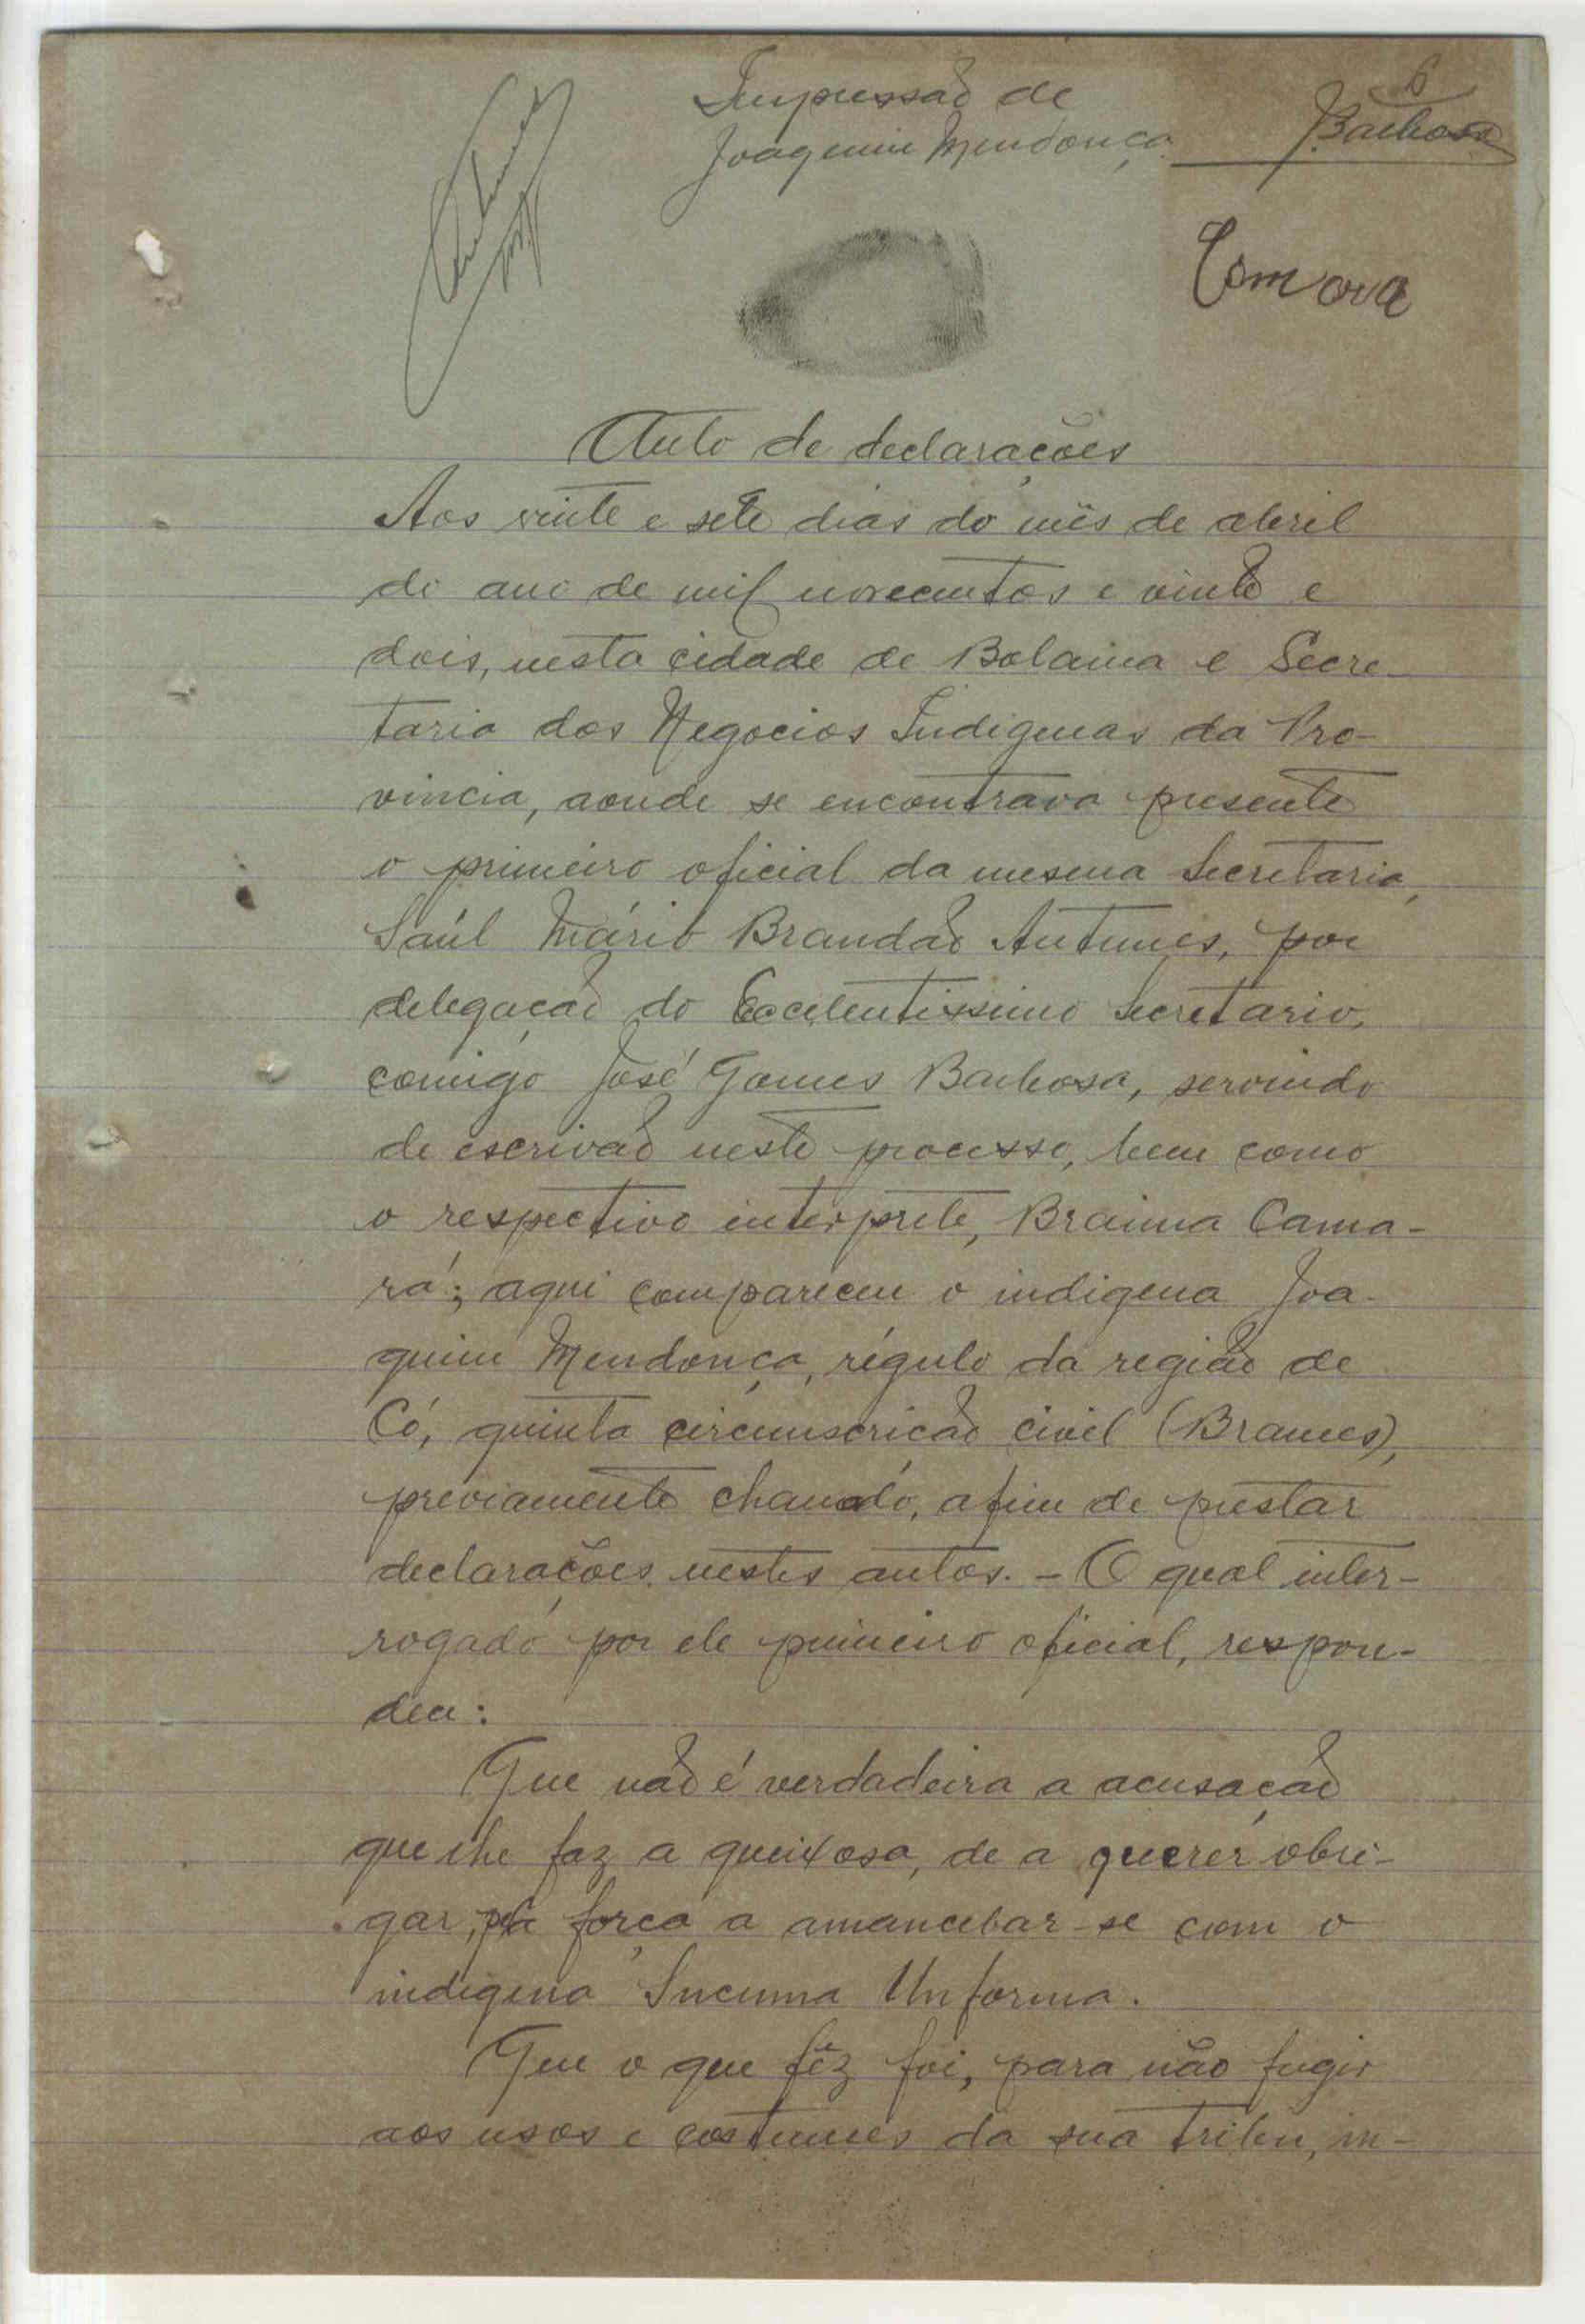 6
Impressão de
Joaquim Mendonça.
Barbosa
Antunes
Auto de declarações
Aos vinte e sete dias do mês de abril
do ano de mil novecentos e vinte e
dois, nesta cidade de Bolama e Secre-
taria dos Negocios Indigenas da Pro-
vincia, aonde se encontrava presente
o primeiro oficial da mesma Secretaria,
Saúl Mário Brandão Antunes, por
delegação do Excelentissimo Secretario,
comigo José Gomes Barbosa, servindo
de escrivão neste processo, bem como
o respectivo interprete, Braima Cama-
rá; aqui compareceu o indigena Joa-
quim Mendonça, régulo da região de
Có, quinta circunscrição civil (Brames),
previamente chamado, afim de prestar
declarações nestes autos. - O qual inter-
rogado por ele primeiro oficial, respon-
deu:
Que não é verdadeira a acusação
que lhe faz a queixosa, de a querer obri-
gar, pela força a amancebar-se com o
indigena Incuma Unforma.
Que o que fêz foi, para não fugir
aos usos e costumes da sua tribu, in-